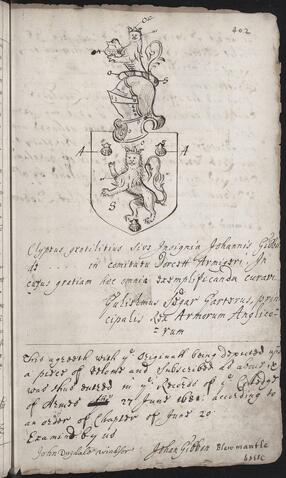 402
Or
S
A A
S
Clypeus gentilitius Sive Insignia Johannis Gibbon
de .... in comitatu Dorcett Armigeri: In
cujus gratiam hoc omnia exemplificanda curavit
Gulielmus Segar Garterus, prin
cipalis Rex Armorum Anglico-
-rum
This agreeth with ye Originall being depicted upon
a piece of and Subscribed as above it
was thus entred in ye Records of ye Colledge
of Armes 27 June 1682. according to
an order of Chapter of June 20
Examined by us
John Dugdale windsor Johan Gibbon Blewmantle